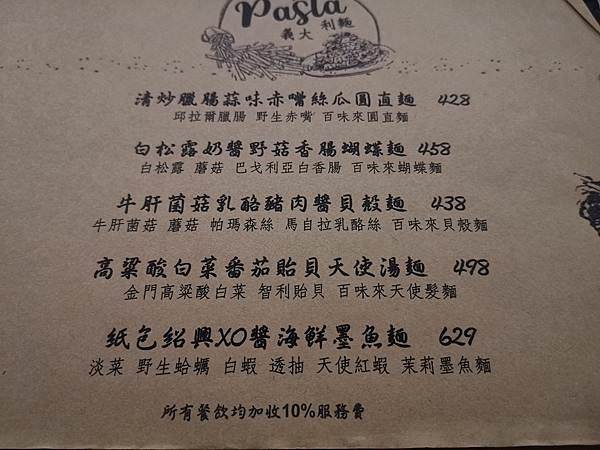 Pasta
義大利麵
清炒臘腸蒜味赤嘴絲瓜圓直麵 428
邱拉爾臘腸 野生赤嘴 百味來圓直麵
白松露奶醬野菇香腸蝴蝶麵 458
白松露 蘑菇 巴戈利亞白香腸 百味來蝴蝶麵
牛肝菌菇乳酪豬肉醬貝殼麵 438
牛肝菌菇 蘑菇 帕瑪森絲 馬自拉乳酪絲 百味來貝殼麵
高粱酸白菜番茄貽貝天使湯麵 498
金門高粱酸白菜 智利貽貝 百味來天使髮麵
紙包紹興XO醬海鮮墨魚麵 629
淡菜 野生蛤蠣 白蝦 透抽 天使紅蝦 茉莉墨魚麵
所有餐飲均加收10%服務費